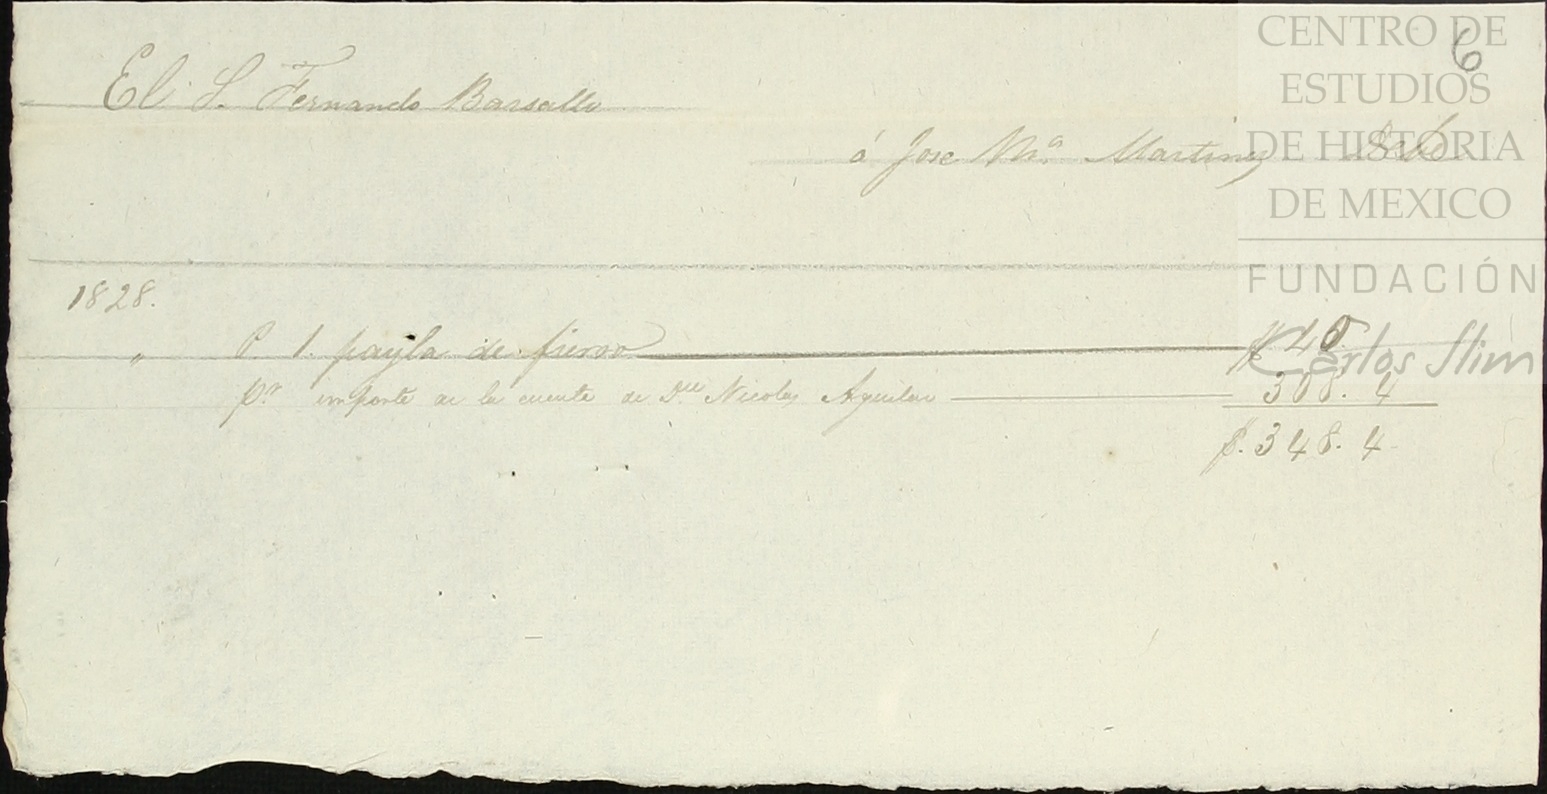 6
El S. Fernando Barsallo
á Jose Ma. Martinez Debe
1828.
" P. 1. payla de fierro $ 40.
Pr. importe de la cuenta de Dn. Nicolas Aguilar 308. 4
$. 348. 4
CENTRO DE
ESTUDIOS
DE HISTORIA
DE MEXICO
FUNDACIÓN
Carlos Slim